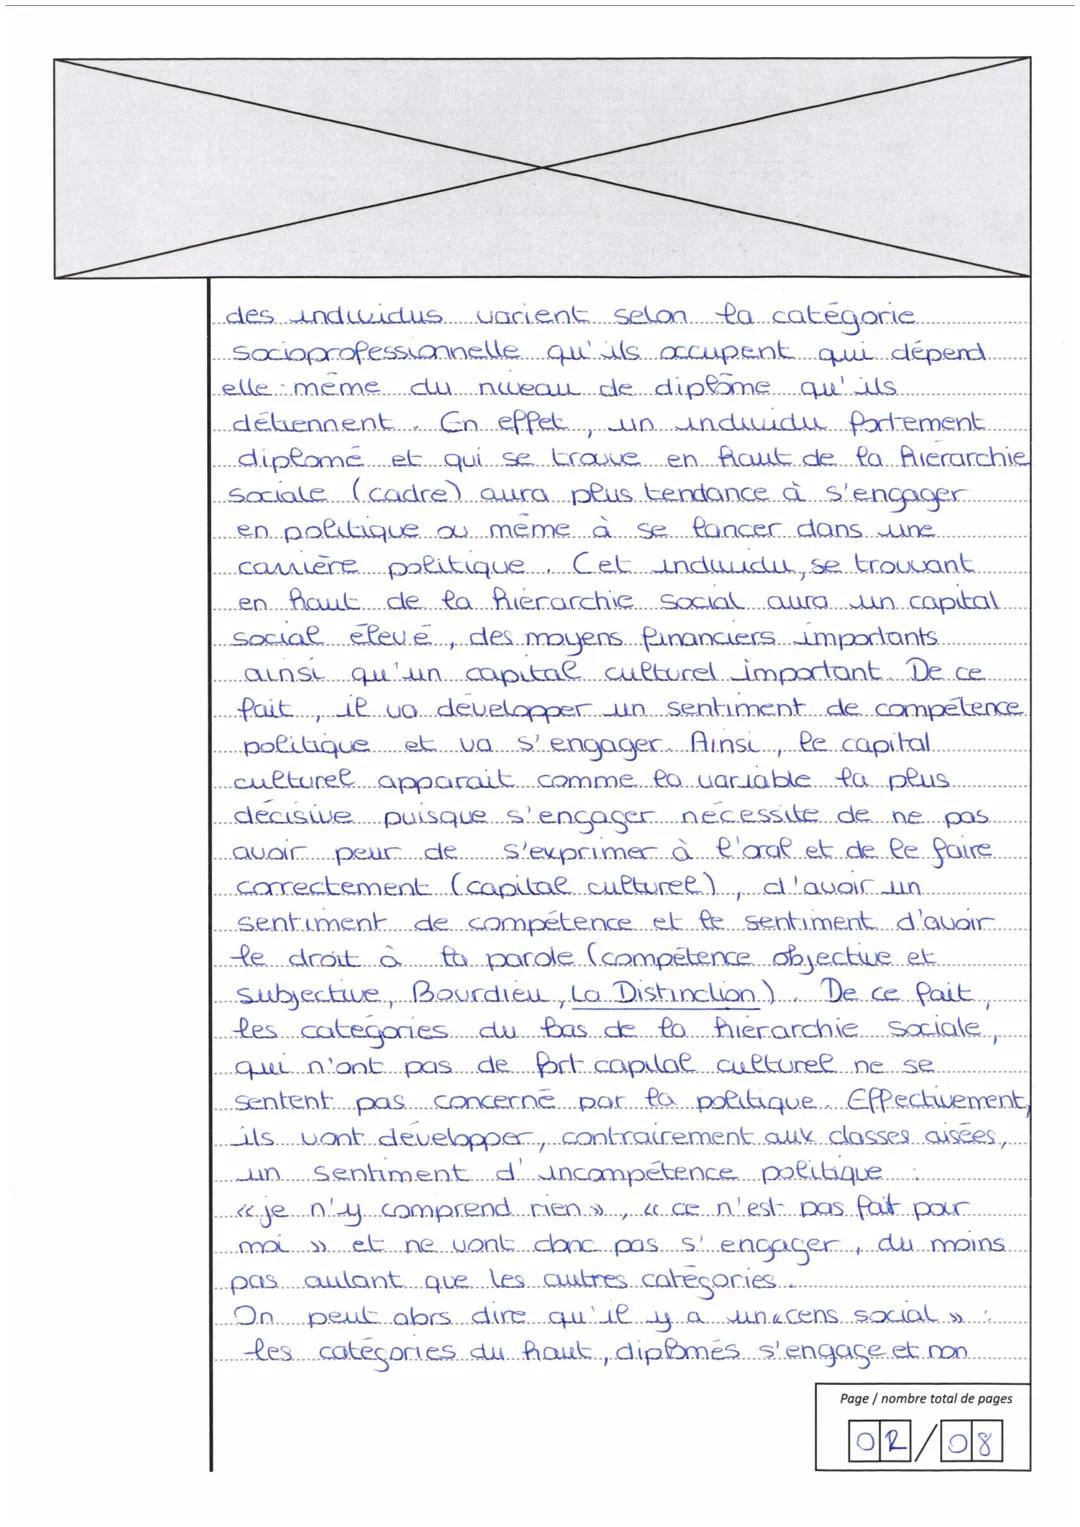 des individus varient selon la catégorie
socioprofessionnelle qu'ils occupent qui dépend
elle-même du niveau de diplôme qu'ils
détiennent. En effet, un individu fortement
diplomé et qui se trouve en haut de la hiérarchie
sociale (cadre) aura plus tendance à s'engager
en politique ou même à se lancer dans une
carrière politique. Cet individu, se trouvant
en haut de la hiérarchie social aura un capital
social élevé, des moyens financiers importants
ainsi qu'un capital culturel important. De ce
fait, il va développer un sentiment de compétence
politique et va s'engager. Ainsi, le capital
culturel apparait comme la variable la plus
décisive puisque s'engager nécessite de ne pas
avoir peur de s'exprimer à l'oral et de le faire
correctement (capital culturel), d'avoir un
sentiment de compétence et le sentiment d'avoir
le droit à la parole (compétence objective et
subjective, Bourdieu, La Distinction). De ce fait,
les catégories du bas de la hiérarchie sociale,
qui n'ont pas de fort capital culturel ne se
sentent pas concerné par la politique. Effectivement,
ils vont développer, contrairement aux classes aisées,
un sentiment d'incompétence politique :
« je n'y comprend rien », « ce n'est pas fait pour
moi » et ne vont donc pas s'engager, du moins
pas autant que les autres catégories.
On peut alors dire qu'il y a un « cens social » :
les catégories du haut, diplômés s'engage et non
Page / nombre total de pages
02/08